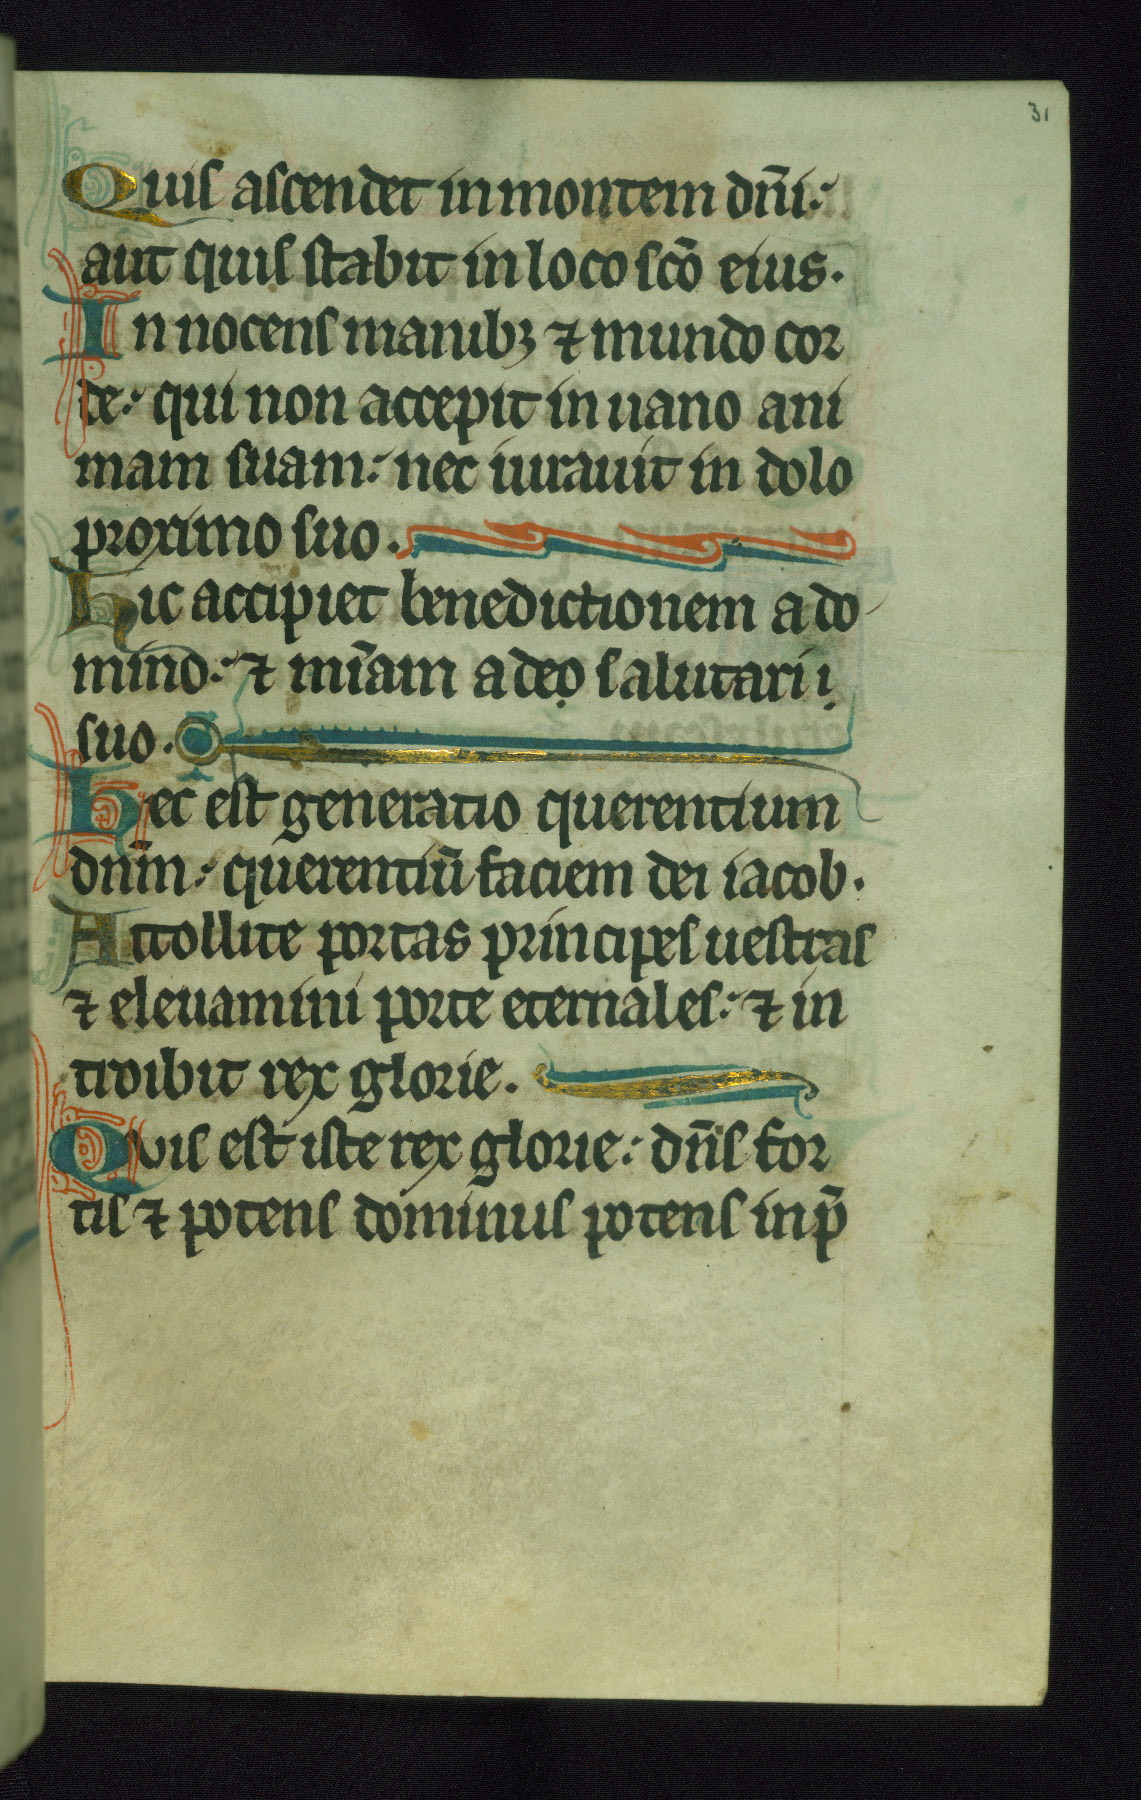 31
Quis ascendet in montem dn̄i:
aut quis stabit in loco sc̄o eius.
In nocens manibꝫ ⁊ mundo cor
de: qui non accepit in uano ani
mam suam: nec iurauit in dolo
proximo suo.
Hic accipiet benedictionem a do
mino: ⁊ mīam a deo salutarii
suo.
Hec est generatio querentium
dnm̄: querentiū faciem dei iacob.
Attollite portas principes uestras
⁊ eleuamini porte eternales: ⁊ in
troibit rex glorie.
Quis est iste rex glorie: dn̄s for
tis ⁊ potens dominus potens in p̄